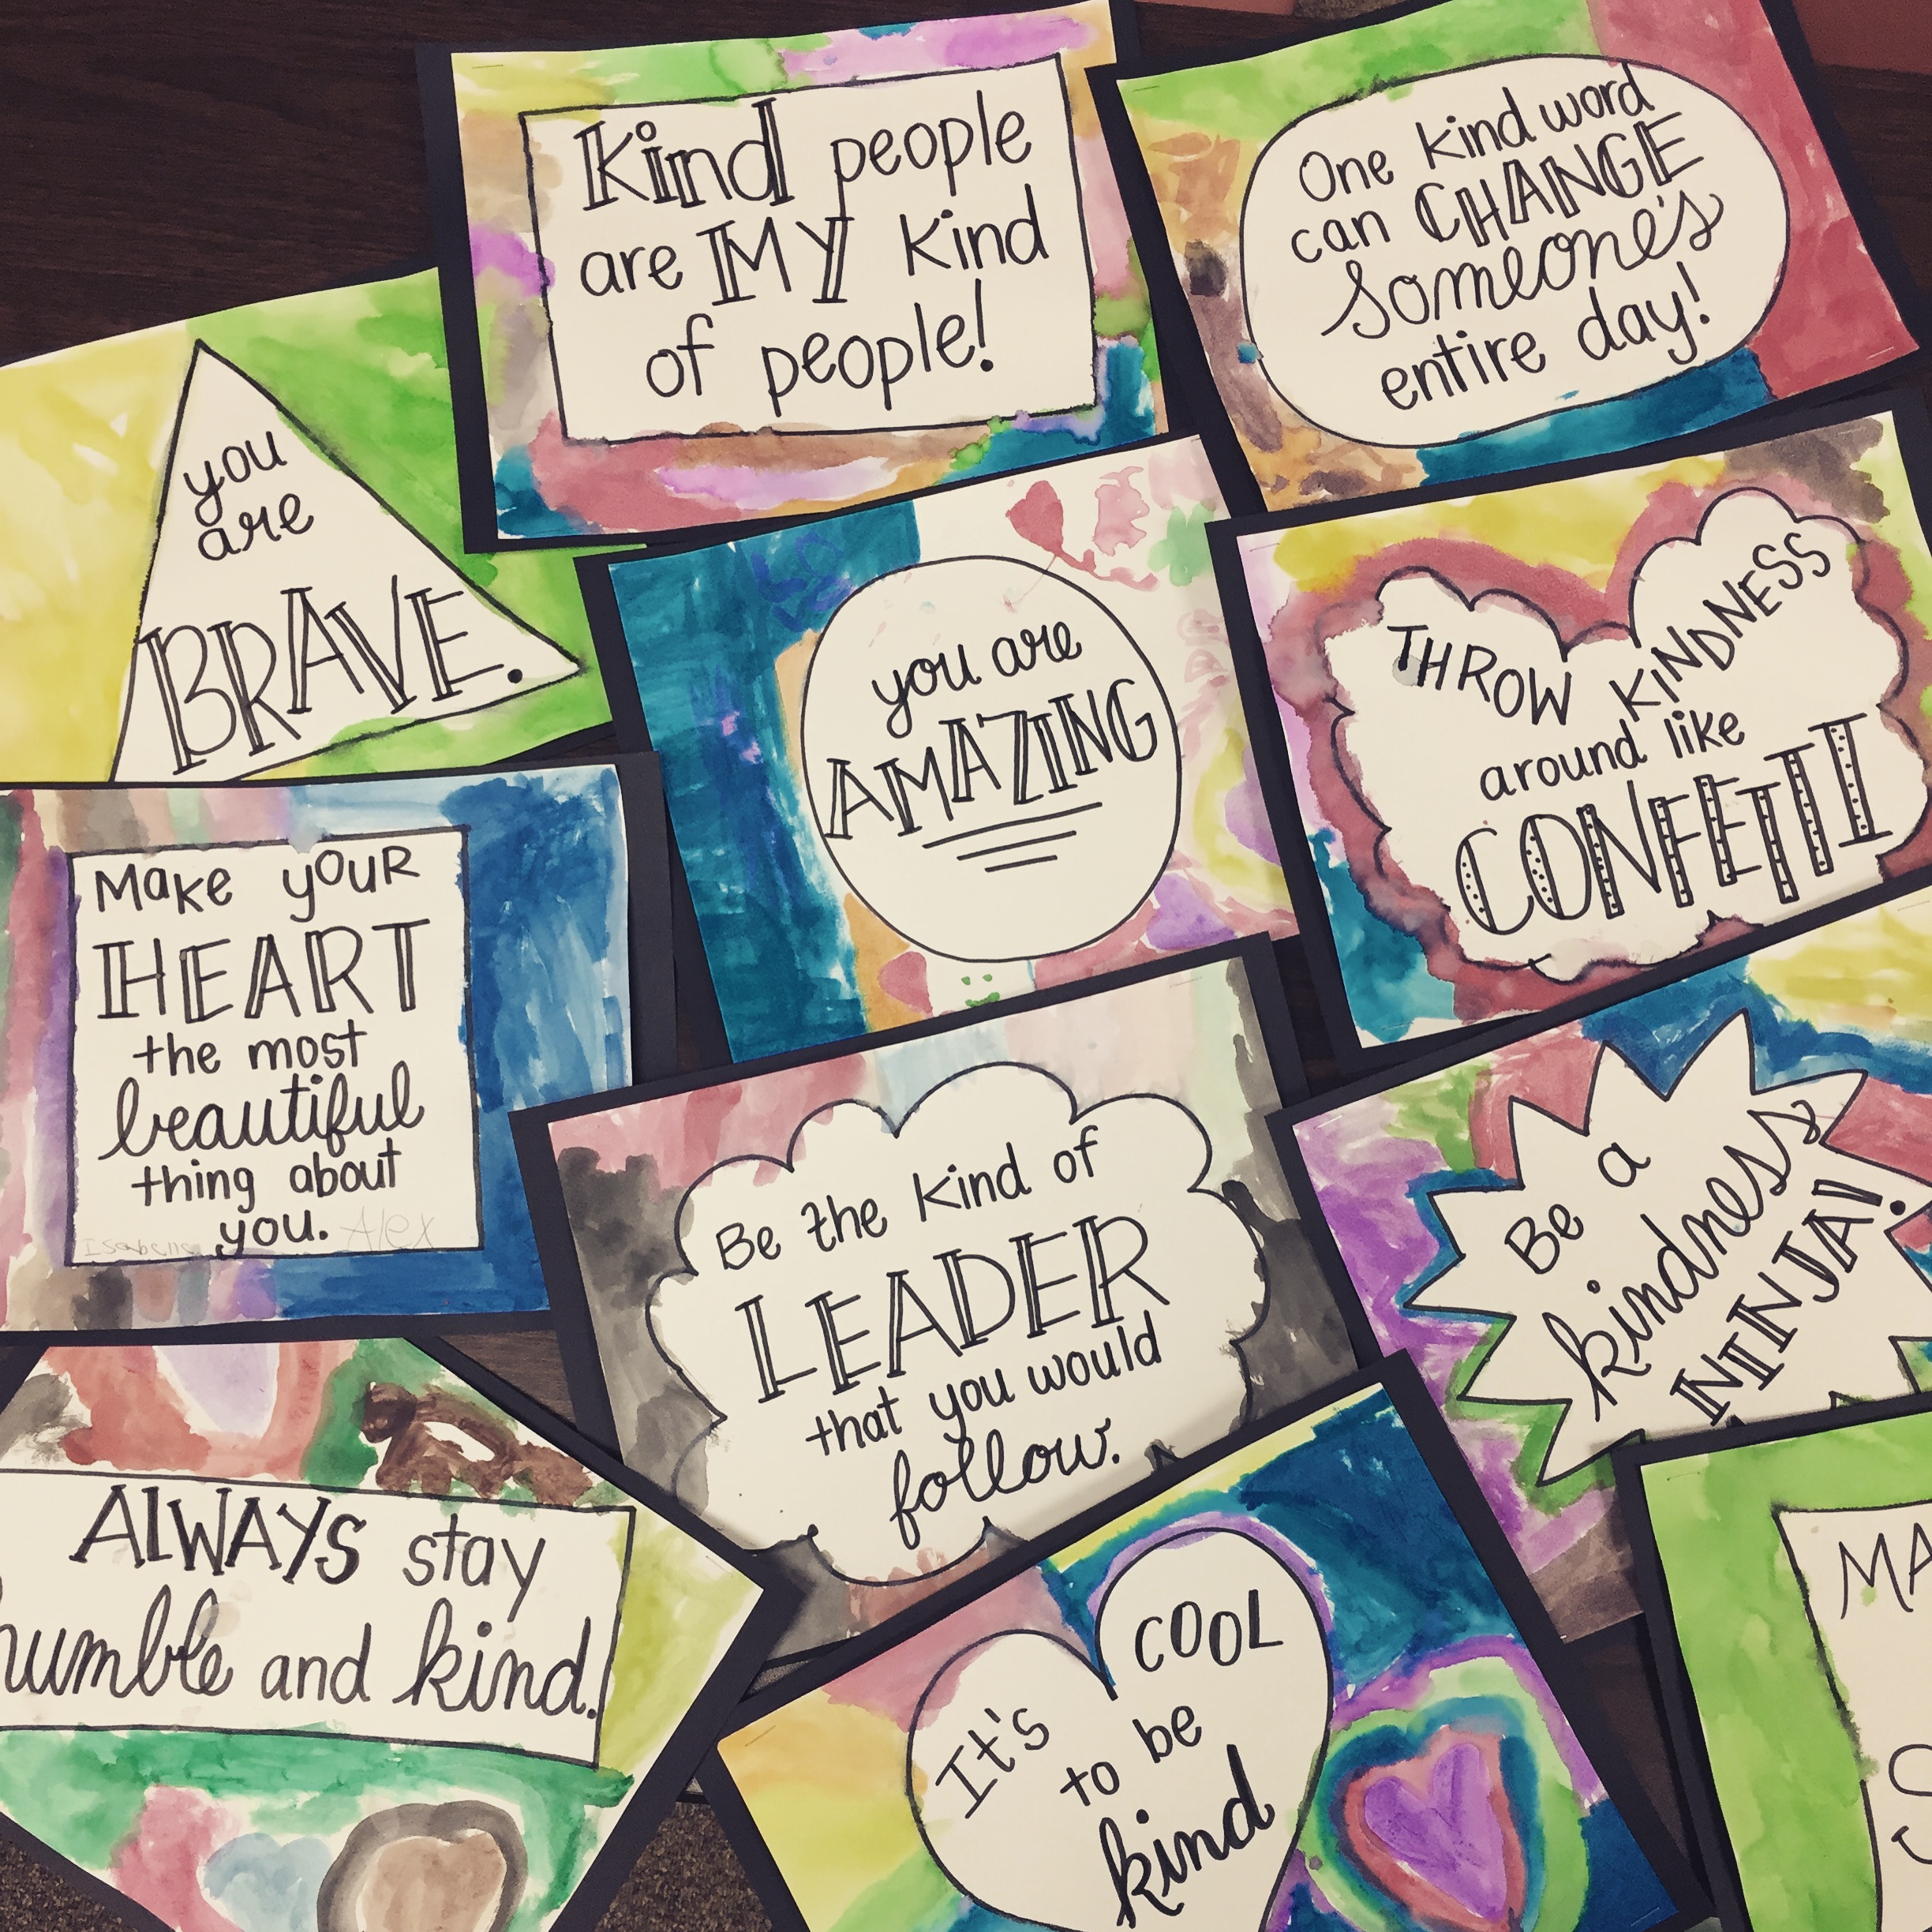 Kind people
are MY kind
of people!
One kind word
can CHANGE
someone's
entire day!
you
are
BRAVE.
you are
AMAZING
THROW KINDNESS
around like
CONFETTI
Make youR
HEART
the most
beautiful
thing about
you.
Isabelle Alex
Be the kind of
LEADER
that you would
follow.
Be a
kindness
NINJA!
AlWAYS stay
humble and kind.
It's COOL
to be
kind
MA